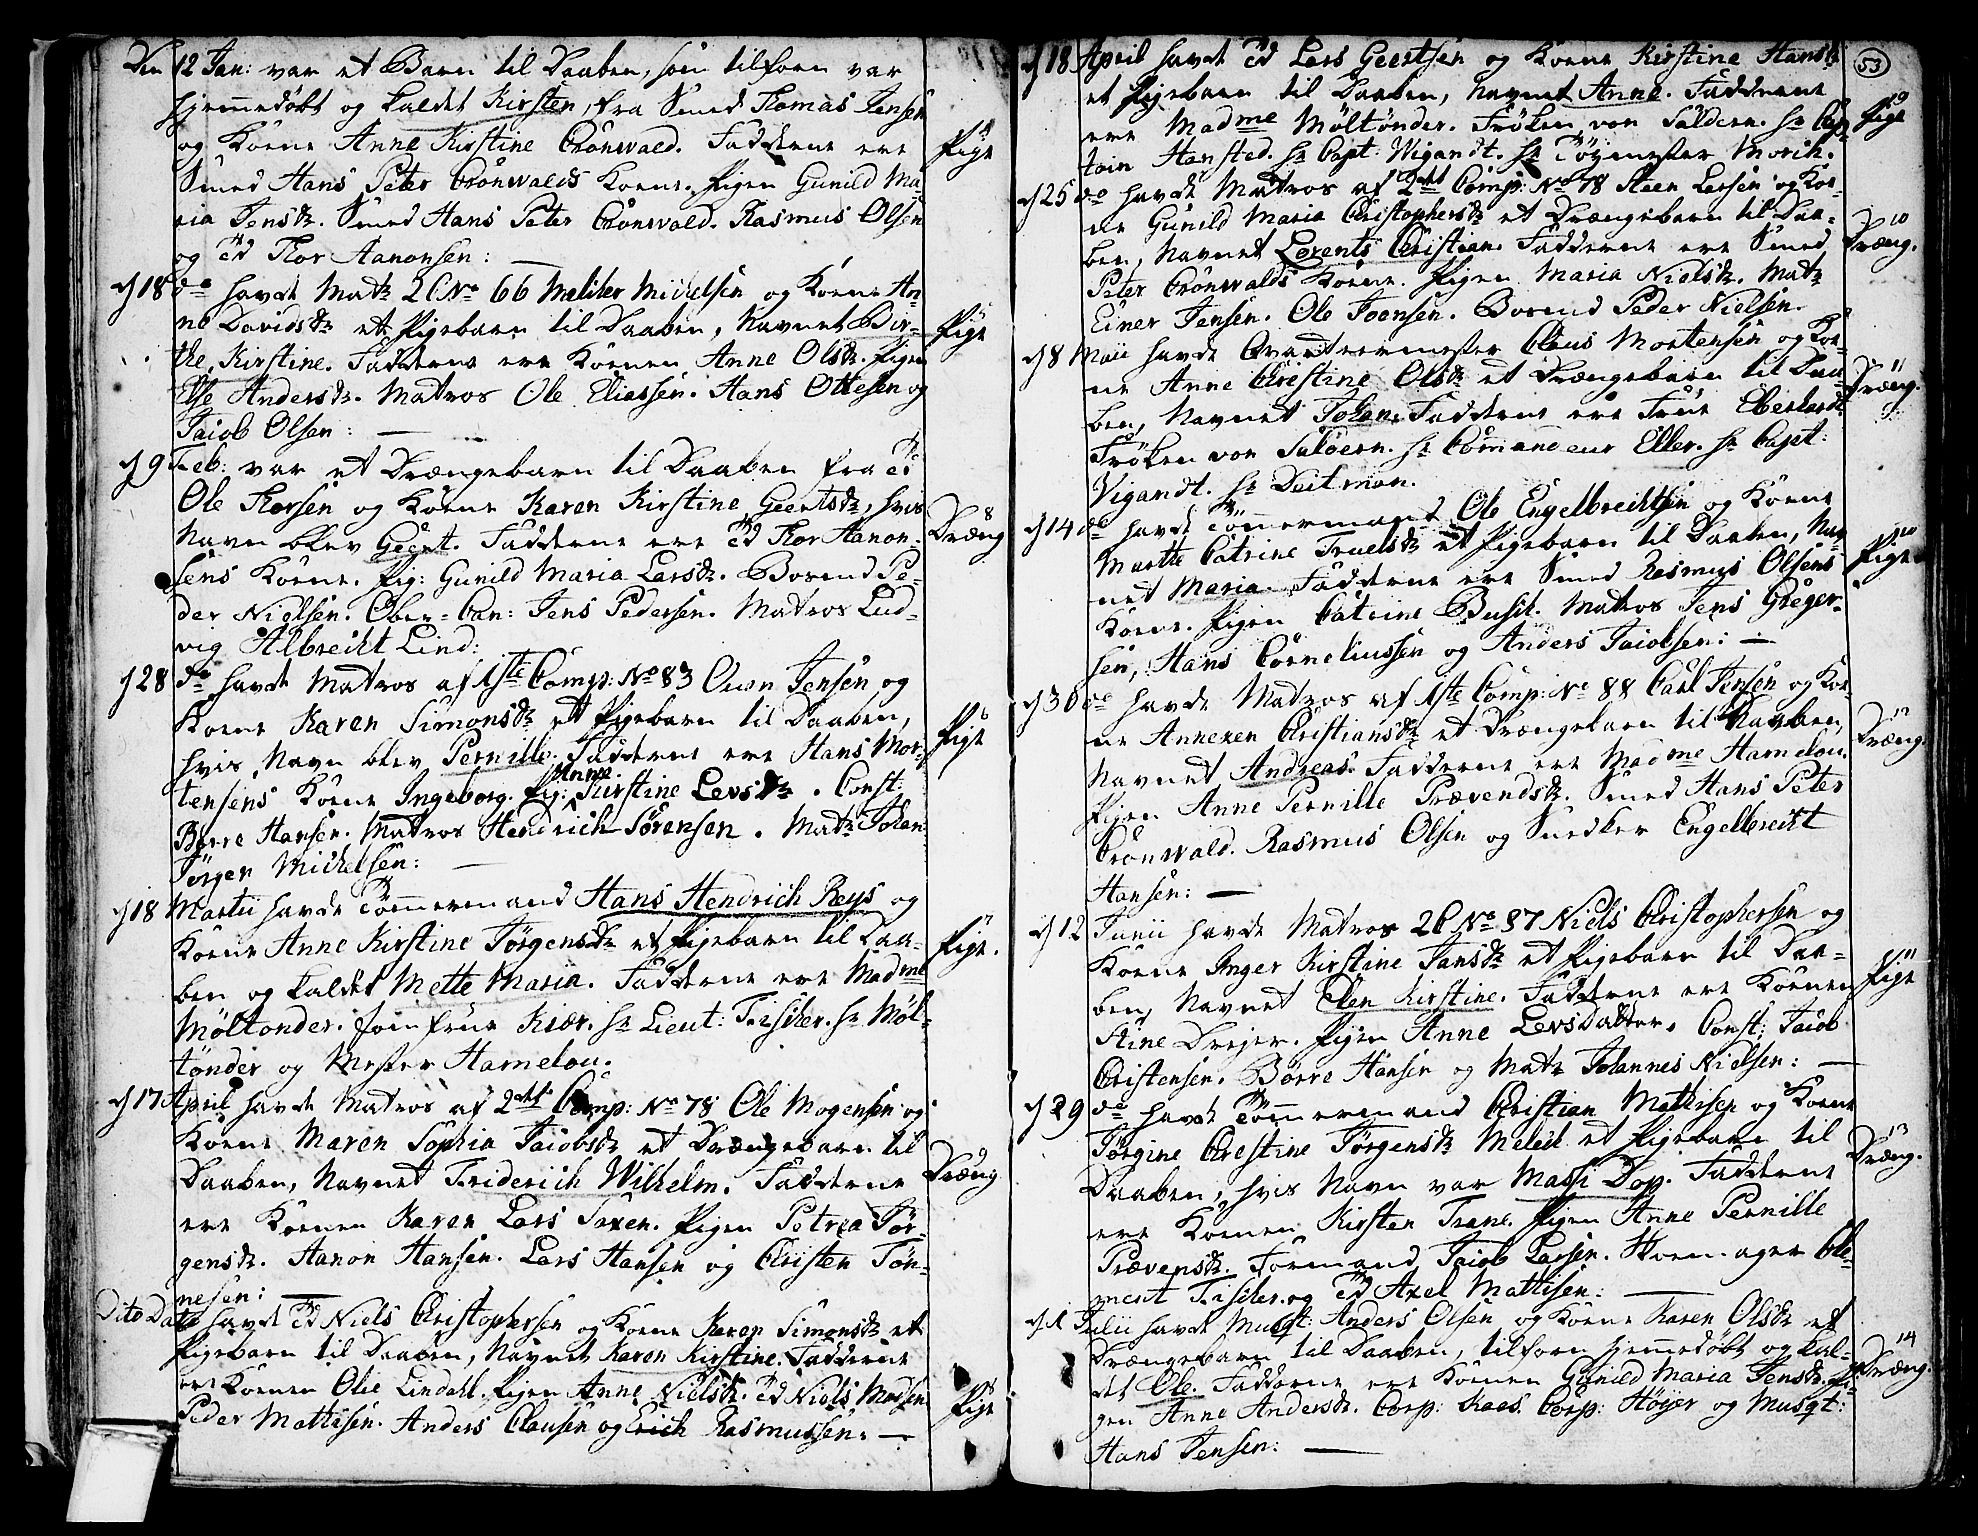 Den 12 Jan: var et Barn til Daaben, som tilforn var
hjemmedöbt og kaldet Kirsten, fra Smed Thomas Jensen
og Koene Anne Kirstine Grönwald. Fadderne ere
Smed Hans Peter Grönwalds Koene. Pigen Gunild Ma
ria Jensdr. Smed Hans Peter Grönwald. Rasmus Olsen
og Thor Aanonsen:
Pige
d 18 do havde Matr 2 C No 66 Meliter Michelsen og Koene An-
ne Davidsdr et Pigebarn til Daaben, Navnet Bir-
the Kirstine. Fadderne ere Konen Anne Olsdr. Pigen
Else Andersdr. Matros Ole Eliassen. Hans Ottesen og
Jacob Olsen:
Pige
d 9 Feb: var et Drængebarn til Daaben fra
Ole Thorsen og Koene Karen Kirstine Geertsdr, hvis
Navn blev Geert. Fadderne ere Thor Aanon-
sens Koene. Pig: Gunild Maria Larsdr. Bosmd Pe-
der Nielsen. Ober-Can: Jens Pedersen. Matros Lud-
vig Albrecht Lind:
8
Dræng
d 28 do havde Matros af 1ste Comp: No 83 Own Jensen og
Koene Karen Simonsdr et Pigebarn til Daaben,
hvis Navn blev Pernille. Fadderne ere Hans Mor-
tensens Koene Ingeborg. Pig: Anne Kirstine Levsdr. Const:
Börre Hansen. Matros Hendrich Sörensen. Matr Johan
Jörgen Michelsen:
Pige
d 18 Martii havde Tömmermand Hans Hendrich Reys og
Koene Anne Kirstine Jörgensdr et Pigebarn til Daa-
ben og kaldet Mette Maria. Fadderne ere Madme
Möltonder. Jomfrue Kiær. Hr Lieut: Fischer. Hr Möl-
tönder og Mester Hamelou.
Pige.
d 17 April havde Matros af 2den Comp: No 78 Ole Mogensen og
Koene Maren Sophia Jacobsdr et Drængebarn til
Daaben, Navnet Friderich Wilhelm. Fadderne
ere Koenen Karen Lars Saxen. Pigen Petrea Jör-
gensdr. Aanon Hansen. Lars Hansen og Christen Tön-
nesen:
9
Dræng
Dito Dato havde Niels Christophersen og Koene Karen Simonsdr et
Pigebarn til Daaben, Navnet Karen Kirstine. Fadderne
ere Koenen Olie Lindahl. Pigen Anne Nielsdr. Niels Madsen
Peder Mattisen. Anders Clausen og Erich Rasmussen:
Pige
53
d 18 April havde Lars Geertsen og Koene Kirstine Hansdr
et Pigebarn til Daaben, Navnet Anne. Fadderne
ere Madme Möltönder. Fröken von Saldern. Hr Cap-
tain Hansted. Hr Capt: Wigandt. Hr Töymester Morch.
Pige
d 25 do havde Matros af 2den Comp: No 78 Steen Larsen og Koe-
ne Gunild Maria Christophersdr et Drængebarn til Daa-
ben, Navnet Lorents Christian. Fadderne ere Smed
Peter Grönwalds Koene. Pigen Maria Nielsdr. Matr
Einer Jensen. Ole Joensen. Bosmd Peder Nielsen.
10
Dræng.
d 8 Maii havde Qvarteermester Claus Mortensen og Koe-
ne Anne Christine Olsdr et Drængebarn til Daa-
ben, Navnet Johan. Fadderne ere Frue Eberhardt
Fröken von Saldern. Hr Comandeur Eller. Hr Capt:
Vigandt. Hr Deitman.
11
Dræng.
d 14 do havde Tömmermand Ole Engelbrechtsen og Koene
Marthe Catrine Truelsdr et Pigebarn til Daaben, Nav-
net Maria. Fadderne ere Smed Rasmus Olsens
Koene. Pigen Catrine Busch. Matros Jens Greger-
sen, Hans Corneliussen og Anders Jacobsen:
10
Pige
d 30 do havde Matros af 1ste Comp: No 88 Carl Jensen og Koe-
ne Annexen Christiansdr et Drængebarn til Daaben,
Navnet Andreas. Fadderne ere Madme Hamelou.
Pigen Anne Pernille Prævendsdr. Smed Hans Peter
Grönwald. Rasmus Olsen og Snedker Engelbrecht
Hansen:
12
Dræng.
d 12 Junii havde Matros 2 C No 87 Niels Christophersen og
Koene Inger Kirstine Jansdr et Pigebarn til Daa-
ben, Navnet Elen Kirstine. Fadderne ere Koenen
Stine Drejer. Pigen Anne Levsdatter. Const: Jacob
Christensen. Börre Hansen og Matr Johannes Nielsen:
11
Pige
d 29 do havde Tömmermand Christian Mathisen og Koene
Jörgine Chrestine Jörgensdr Meleck et Pigebarn til
Daaben, hvis Navn var Massi Dop. Fadderne
ere Koenen Kirsten Trane. Pigen Anne Pernille
Prævensdr. Formand Jacob Larsen. Skoemager Cle-
ment Fischer og Axel Mattisen:
13
Dræng.
d 1 Julii havde Musqt: Anders Olsen og Koene Karen Olsdr et
Drængebarn til Daaben, tilforn hjemmedöbt og kal-
det Ole. Fadderne ere Koenen Gunild Maria Jensdr. Pi-
gen Anne Andersdr. Corp: Kaas. Corp: Höyer og Musqt:
Hans Jensen:
14
Dræng.